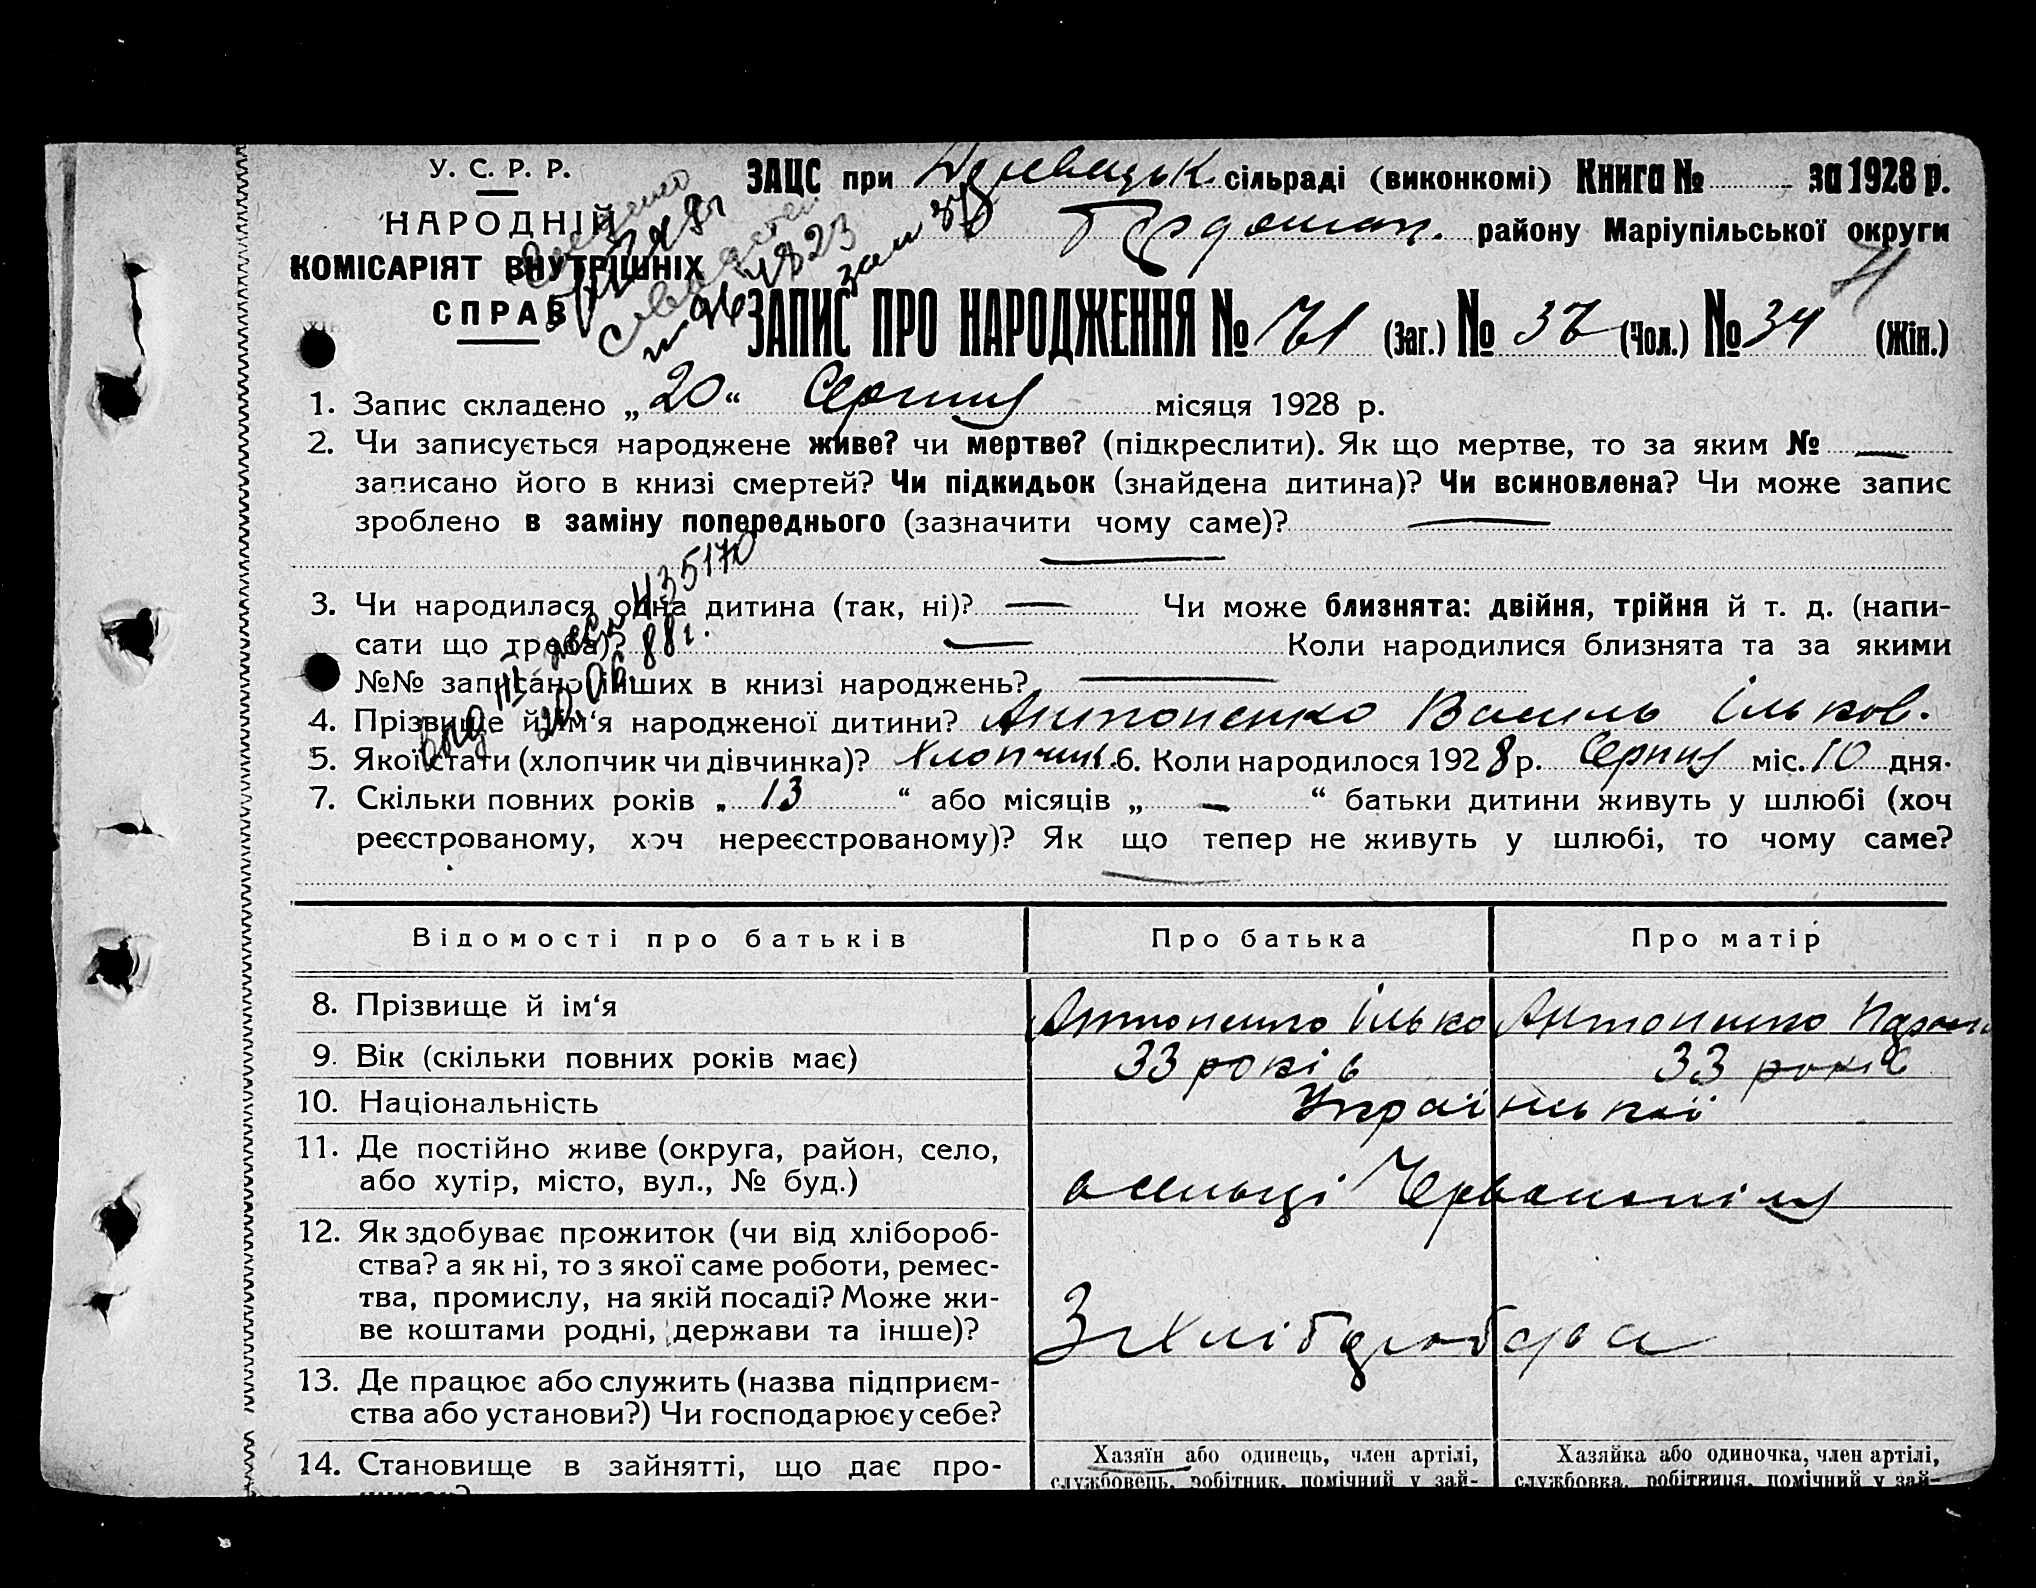 У. С. Р. Р.
НАРОДНІЙ
КОМІСАРІЯТ ВНУТРІШНІХ
СПРАВ
ЗАЦС при сільраді (виконкомі) Книга № за 1928 р.
району Маріупільської округи
ЗАПИС ПРО НАРОДЖЕННЯ № 71 (Заг.) № 37 (Чол.) № 34 (Жін.)
1. Запис складено „20“ Серпня місяця 1928 р.
2. Чи записується народжене живе? чи мертве? (підкреслити). Як що мертве, то за яким № —
записано його в книзі смертей? Чи підкидьок (знайдена дитина)? Чи всиновлена? Чи може запис
зроблено в заміну попереднього (зазначити чому саме)? —
—
3. Чи народилася одна дитина (так, ні)? — Чи може близнята: двійня, трійня й т. д. (напи-
сати що треба)? — Коли народилися близнята та за якими
№№ записано інших в книзі народжень? —
435170
20.06.88г.
4. Прізвище й ім‘я народженої дитини? Антоненко Василь Ільков.
5. Якої стати (хлопчик чи дівчинка)? Хлопчик. 6. Коли народилося 1928 р. Серпня міс. 10 дня.
7. Скільки повних років „ 13 “ або місяців „ — “ батьки дитини живуть у шлюбі (хоч
реєстрованому, хоч нереєстрованому)? Як що тепер не живуть у шлюбі, то чому саме?
—
Відомості про батьків Про батька Про матір
8. Прізвище й ім‘я Антоненко Ілько Антоненко
9. Вік (скільки повних років має) 33 років 33 років
10. Національність Української
11. Де постійно живе (округа, район, село,
або хутір, місто, вул., № буд.)
12. Як здобуває прожиток (чи від хлібороб-
ства? а як ні, то з якої саме роботи, ремес-
тва, промислу, на якій посаді? Може жи-
ве коштами родні, держави та інше)?
13. Де працює або служить (назва підприєм-
ства або установи?) Чи господарює у себе?
14. Становище в зайнятті, що дає про-
Хазяїн або одинець, член артілі,
службовець, робітник, помічний у зай-
Хазяйка або одиночка, член артілі,
службовка, робітниця, помічний у зай-